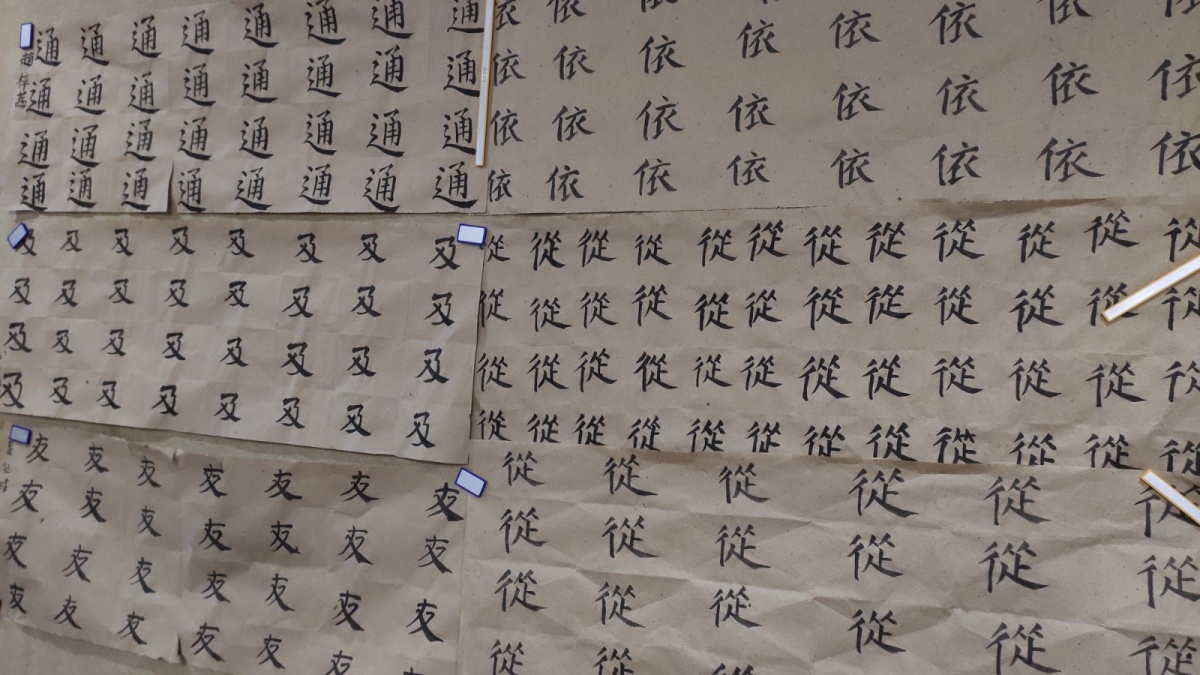 通通通通通通通通
通通通通通通通通
通通通通通通通通
通通通通通通通通
依依
依依依依依依依依
依依依依依依依依
依依依依依依依依
及及及及及及及及
及及及及及及及及
及及及及及及及及
及及及及及及及及
從從從從從從從從從從從從
從從從從從從從從從從從從
從從從從從從從從從從從從
從從從從從從從從從從從從
友友友友友友友
友友友友友友友
友友友友友友友
友友友友友友
從從從從從從
從從從從從從
從從從從從從
從從